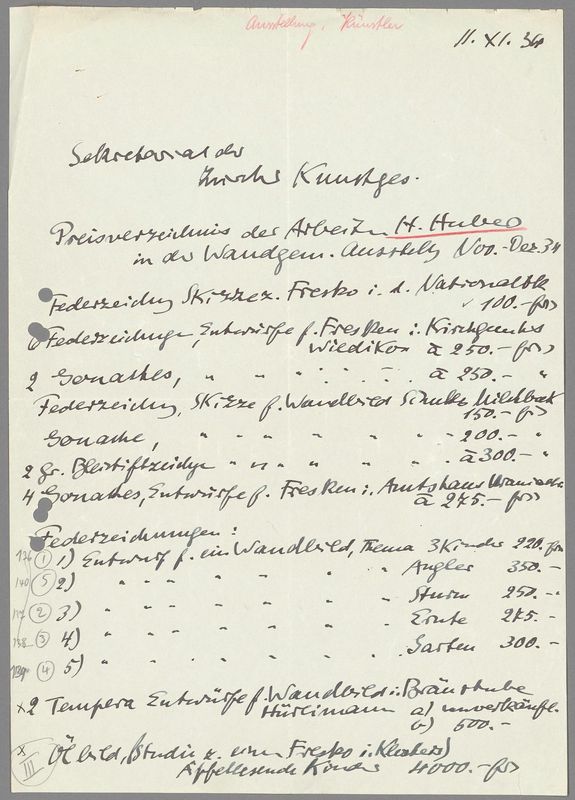 Ausstellung, Künstler
11. XI. 34
Sekretariat der
Zürcher Kunstges.
Preisverzeichnis der Arbeiten H. Huber
in der Wandgem. Ausstellg Nov.-Dez 34
Federzeichng Skizze z. Fresko i. d. Nationalbk
100.- frs
6 Federzeichngn, Entwürfe f. Fresken i. Kirchgemhs
Wiedikon à 250.- frs
2 Gouaches, " " " " " à 250.- "
Federzeichng, Skizze f. Wandbild Schulhs Milchbuck
150.- frs
Gouache, " " " " " " 200.- "
2 gr. Bleistiftzeichgn " " " " " à 300.- "
4 Gouaches, Entwürfe f. Fresken i. Amtshaus Urania
à 275.- frs
Federzeichnungen:
136 1 1) Entwurf f. ein Wandbild, Thema 3 Kinder 220.- frs
140 5 2) " " " " " " Angler 350.-
137 2 3) " " " " " " Sturm 250.-
138 3 4) " " " " " " Ernte 275.-
139 4 5) " " " " " " Garten 300.-
x 2 Tempera Entwürfe f. Wandbild i. Bräustube
Hürlimann a) unverkäufl.
b) 500.-
x III Ölbild, (Studie z. einem Fresko i.
Äpfellesende Kinder 4000.- frs